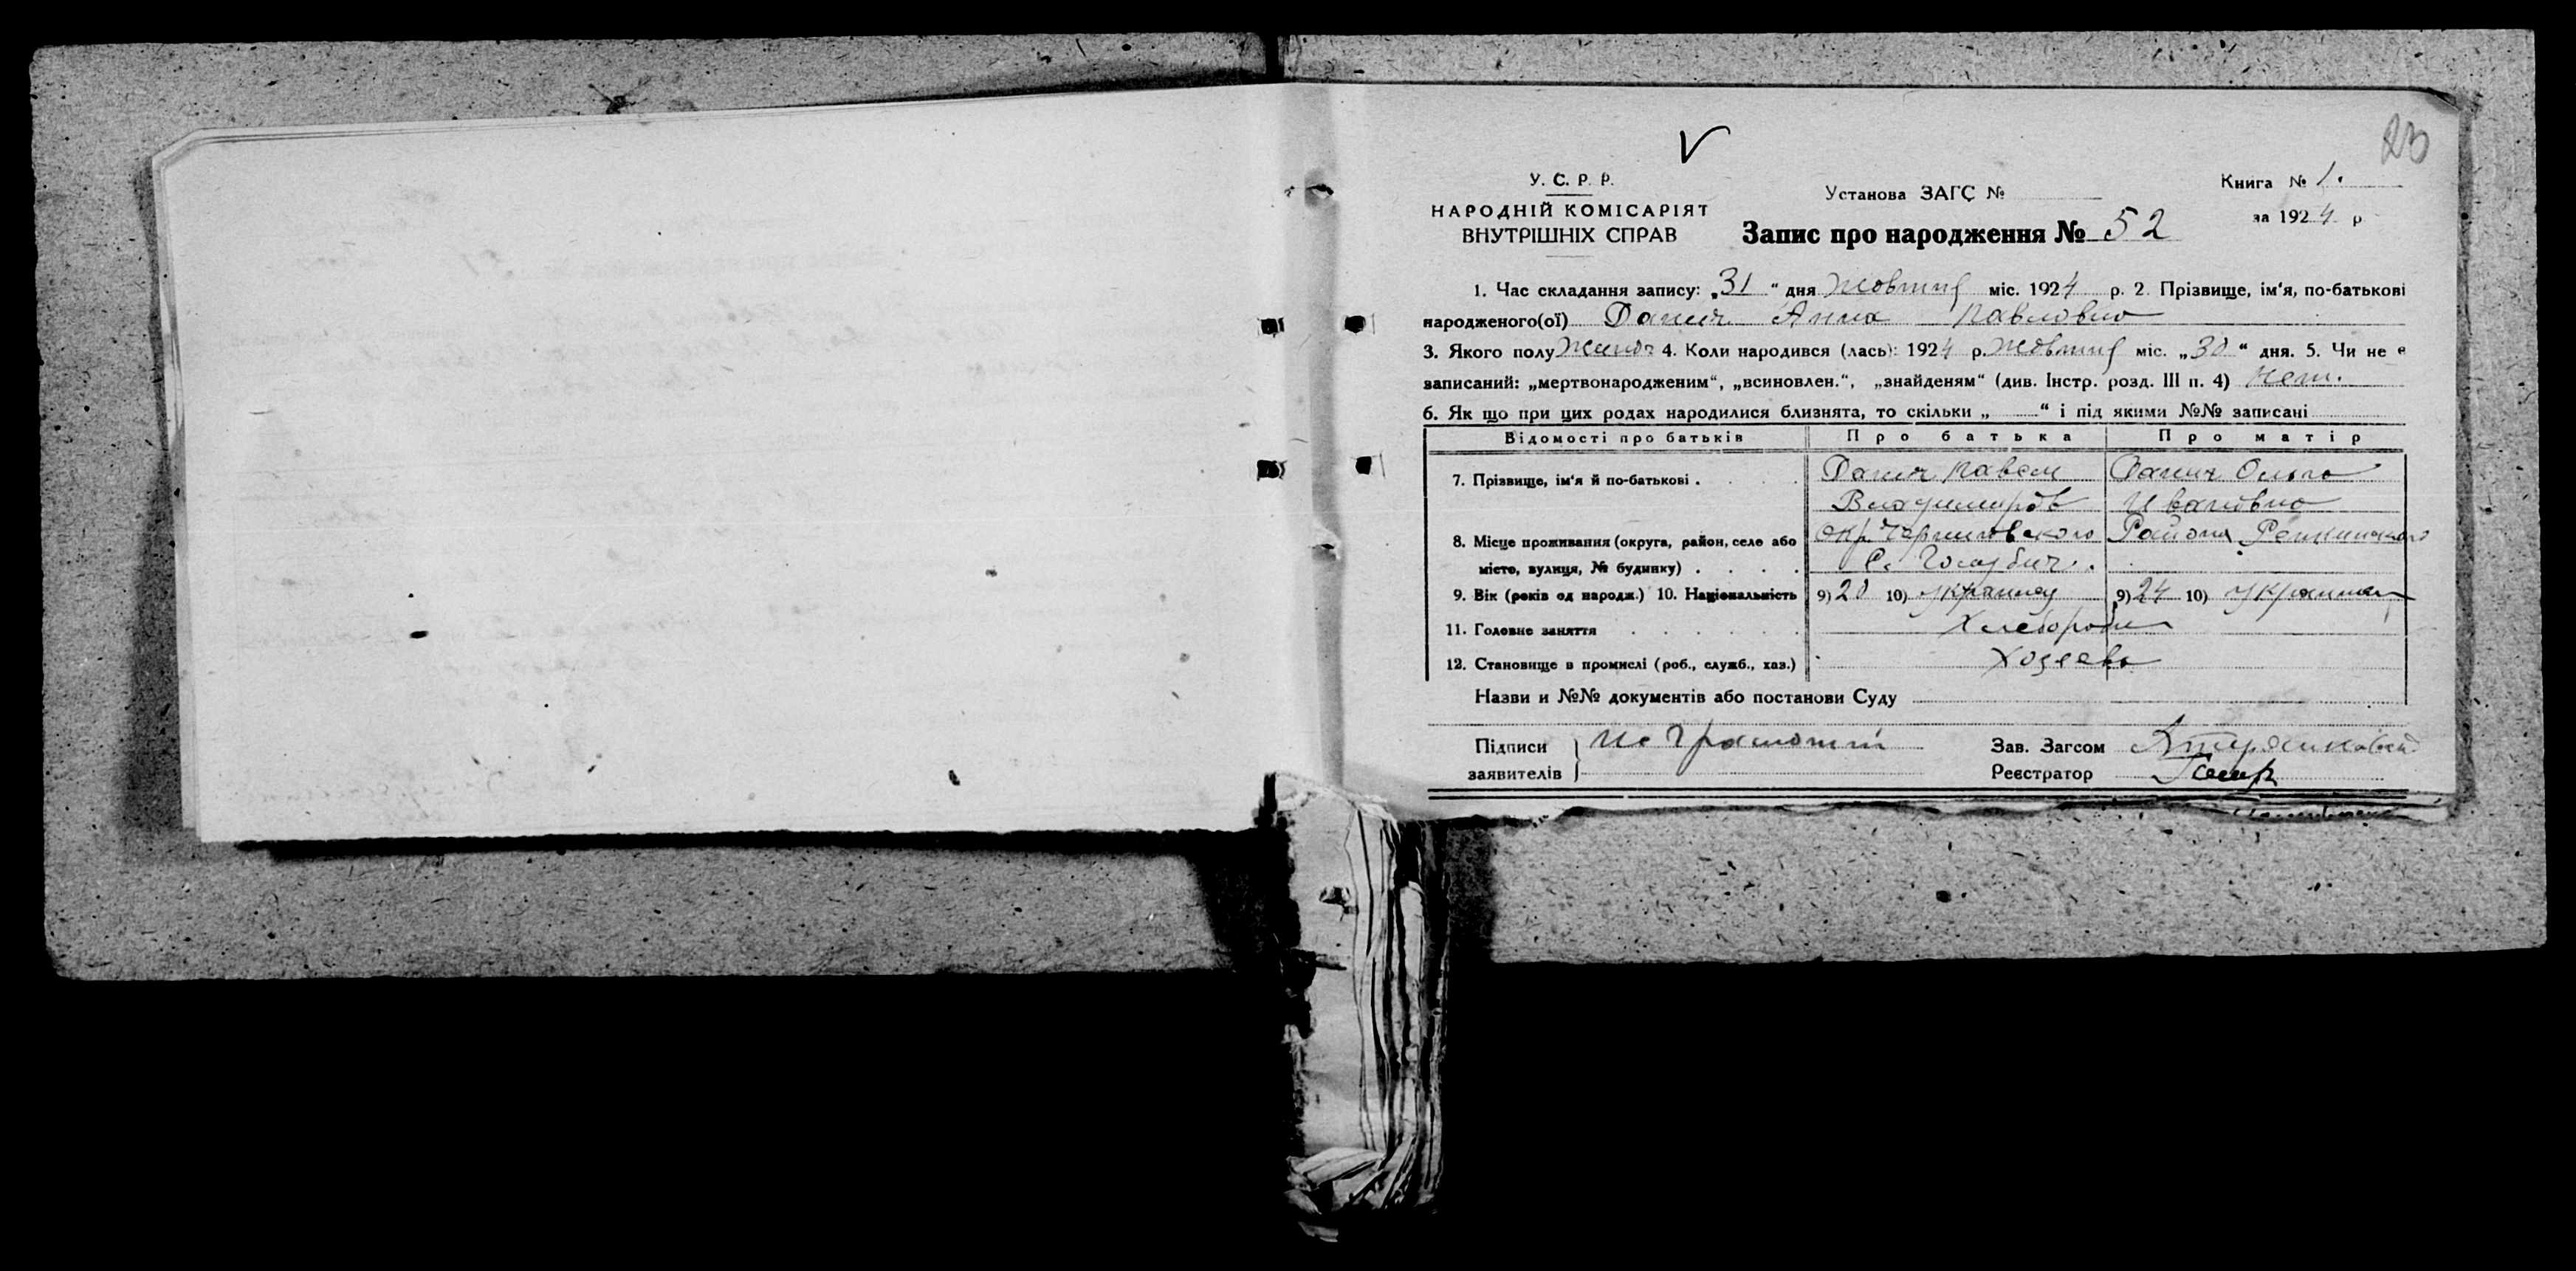 23
У. С. Р. Р.
НАРОДНІЙ КОМІСАРІЯТ
ВНУТРІШНІХ СПРАВ
Установа ЗАГС №
Книга № 1.
за 1924 р
Запис про народження № 52
1. Час складання запису: „31“ дня жовтня міс. 1924 р. 2. Прізвище, ім'я, по-батькові
народженого(ої) Данич Анна Павловна
3. Якого полу 4. Коли народився (лась): 1924 р. жовтня міс. „30“ дня. 5. Чи не є
записаний: „мертвонародженим“, „всиновлен.“, „знайденям“ (див. Інстр. розд. III п. 4) нет.
6. Як що при цих родах народилися близнята, то скільки „ “ і під якими №№ записані
Відомості про батьків Про батька Про матір
7. Прізвище, ім'я й по-батькові . Данич Павел Данич Ольга
Владимиров Ивановна
8. Місце проживання (округа, район, село або Окр. Черниговского Района Репкинского
місто, вулиця, № будинку) . . . . С. Голубичи.
9. Вік (років од народж.) 10. Національність 9) 20 10) 9) 24 10)
11. Головне заняття
12. Становище в промислі (роб., служб., хаз.) Хозяева
Назви и №№ документів або постанови Суду
Підписи неграмотний Зав. Загсом
заявителів Реєстратор